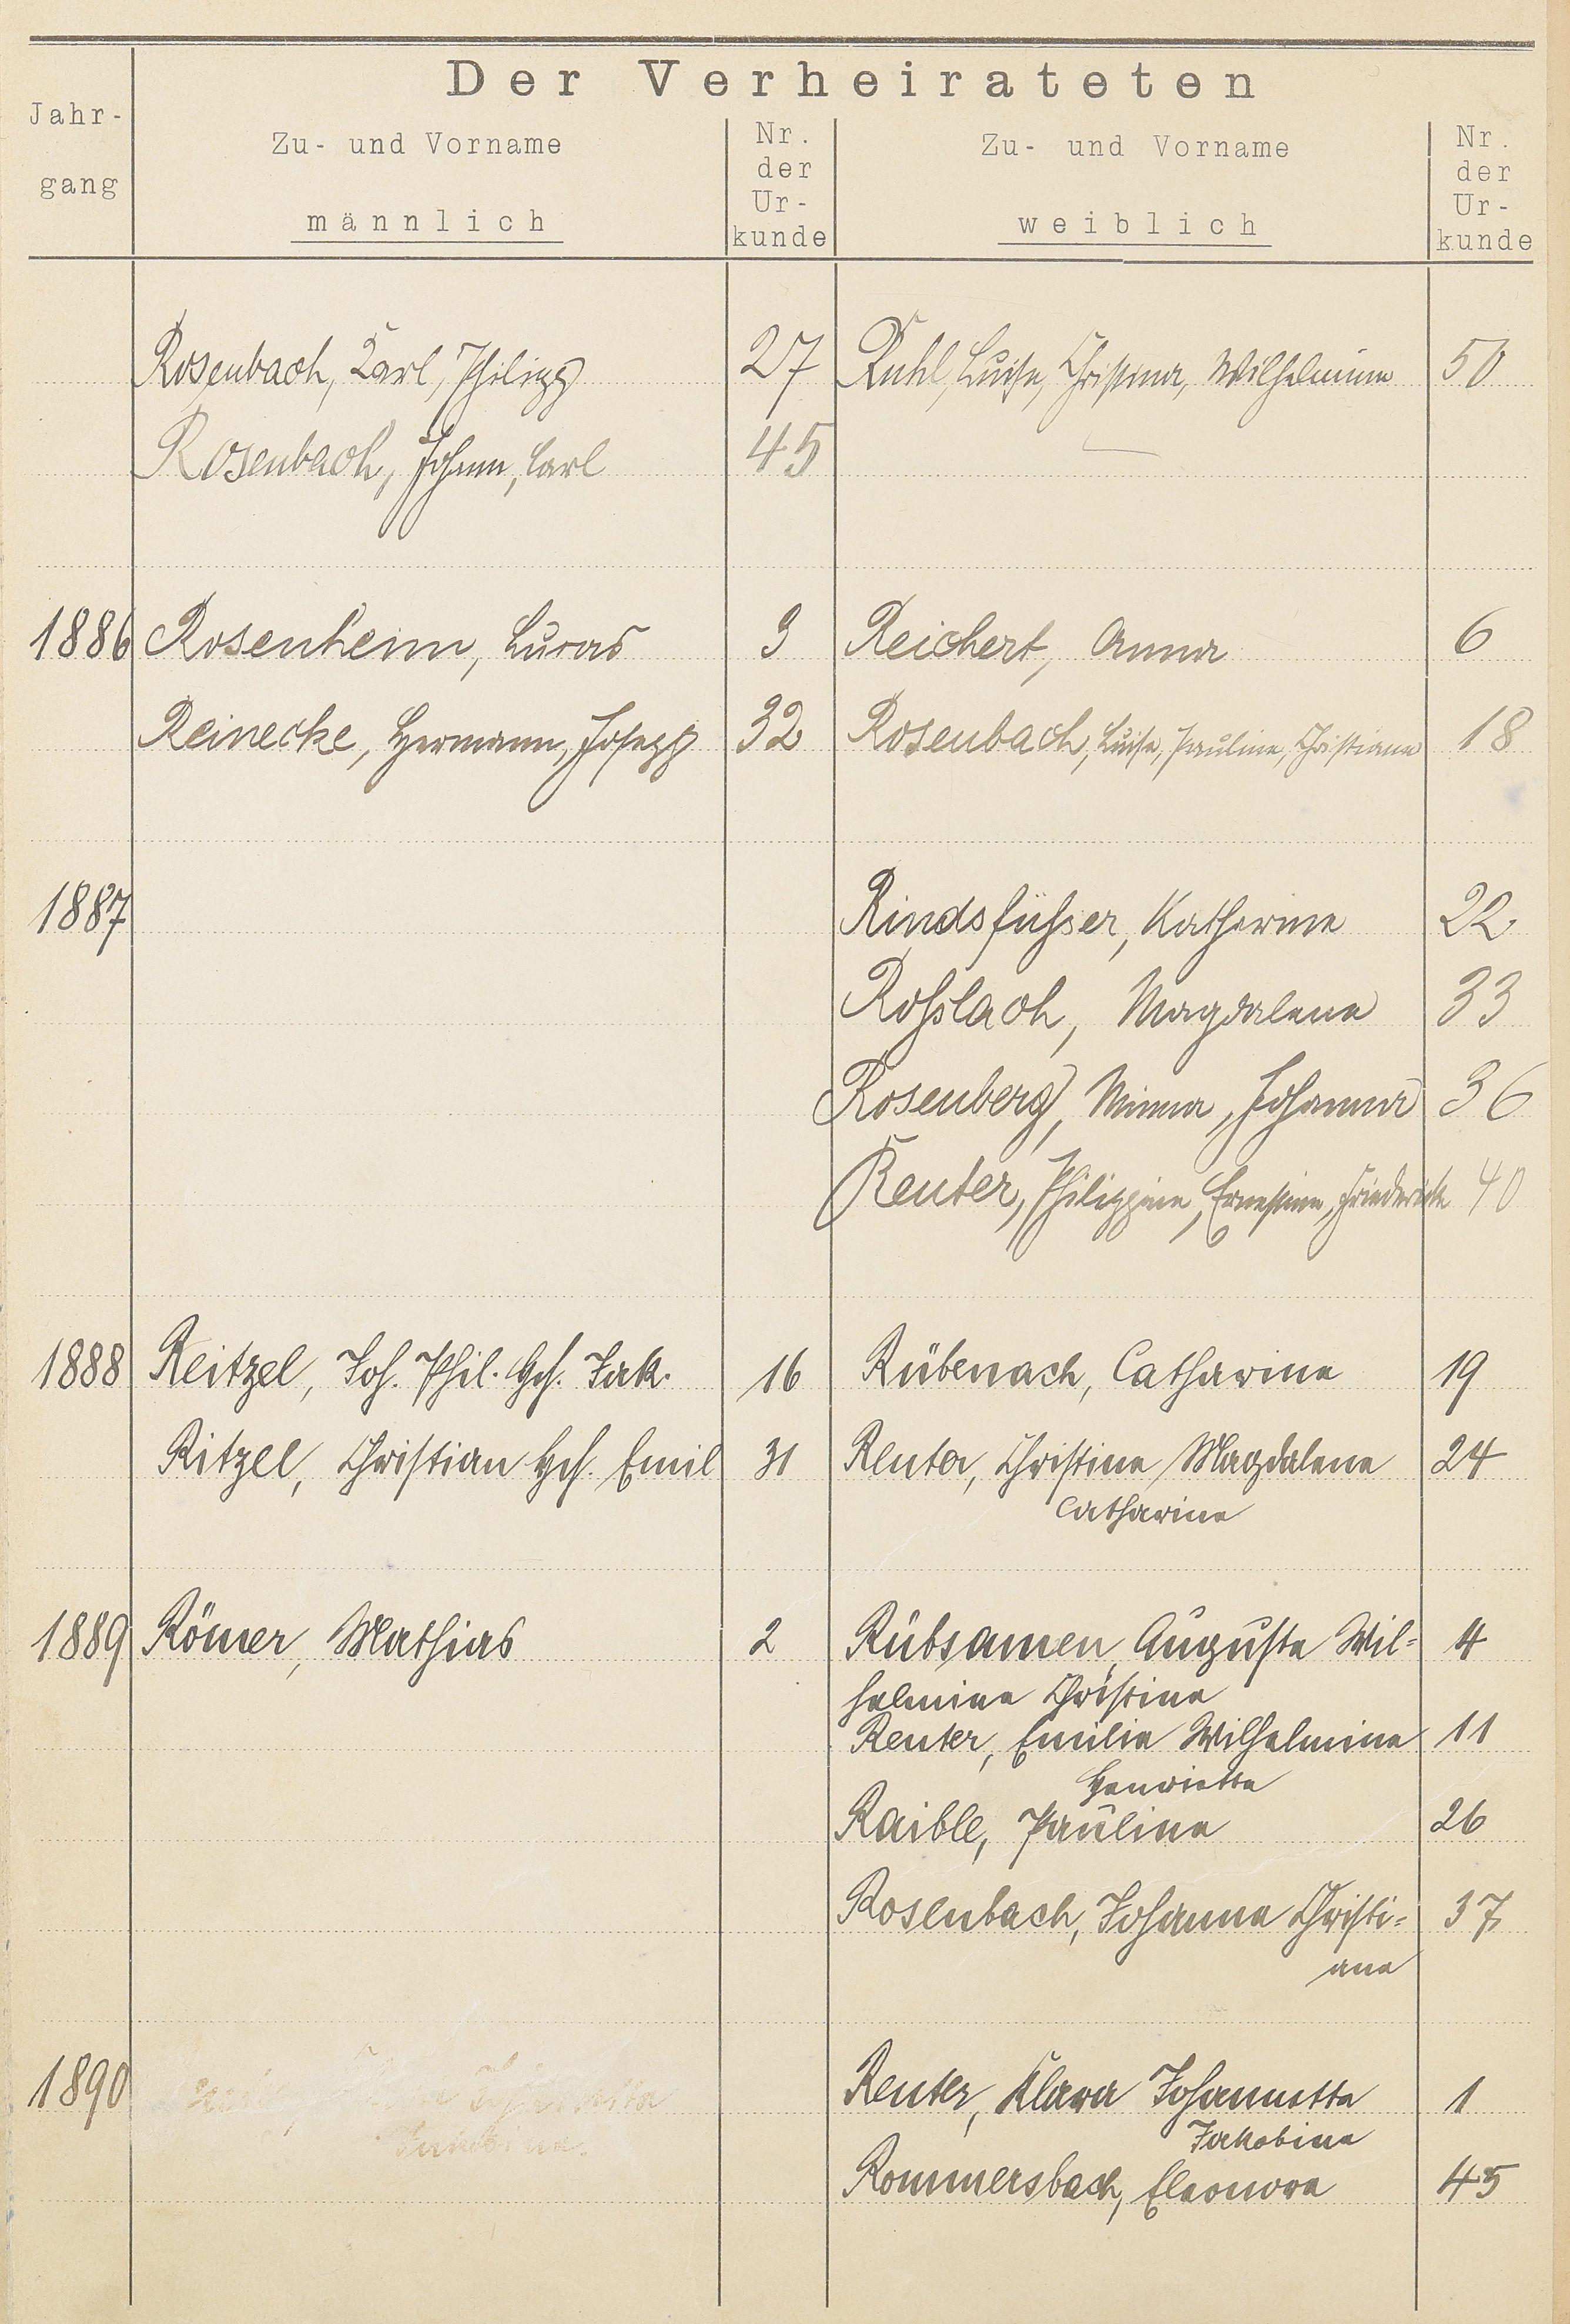 Der Verheirateten
Jahr-
gang
Zu- und Vorname
männlich
Nr.
der
Ur-
kunde
Zu- und Vorname
weiblich
Nr.
der
Ur-
kunde
Rosenbach, Karl, Philipp 27 Ruhl, Luise, Christina, Wilhelmine 50
Rosenbach, Johann, Carl 45
1886 Rosenheim, Lucas 3 Reichert, Anna 6
Reinecke, Hermann, Joseph 32 Rosenbach, Luise, Pauline, Christiane 18
1887 Rindsfüßer, Katharine 22
Roßlach, Magdalene 33
Rosenberg, Minna, Johanna 36
Reuter, Philippine, Ernestine, Friederike 40
1888 Reitzel, Joh. Phil. Hch. Jak. 16 Rübenach, Catharine 19
Ritzel, Christian Hch. Emil 31 Reuter, Christine Magdalene 24
Catharine
1889 Römer, Mathias 2 Rübsamen, Auguste Wil= 4
helmine Christine
Reuter, Emilie Wilhelmine 11
Henriette
Raible, Pauline 26
Rosenbach, Johanna Christi= 37
ane
1890 Reuter, Klara Johannette 1
Jakobine
Rommersbach, Eleonore 45